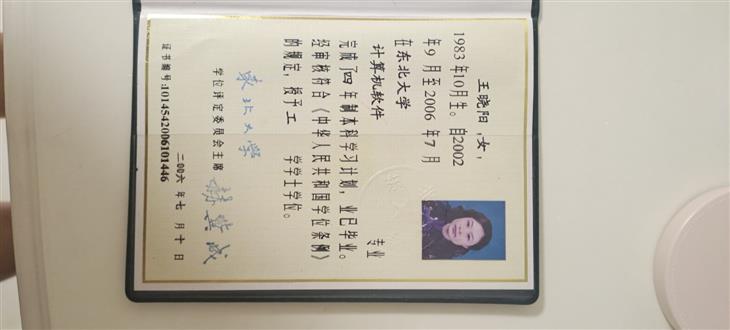 王晓阳 ,女,
1983 年10月生。自2002
年 9 月至 2006 年 7 月
在东北大学
计算机软件 专业
完成了四年制本科学习计划，业已毕业。
经审核符合《中华人民共和国学位条例》
的规定，授予工 学学士学位。
东北大学
学位评定委员会主席
证书编号:1014542006101446
二〇〇六 年 七 月 十 日